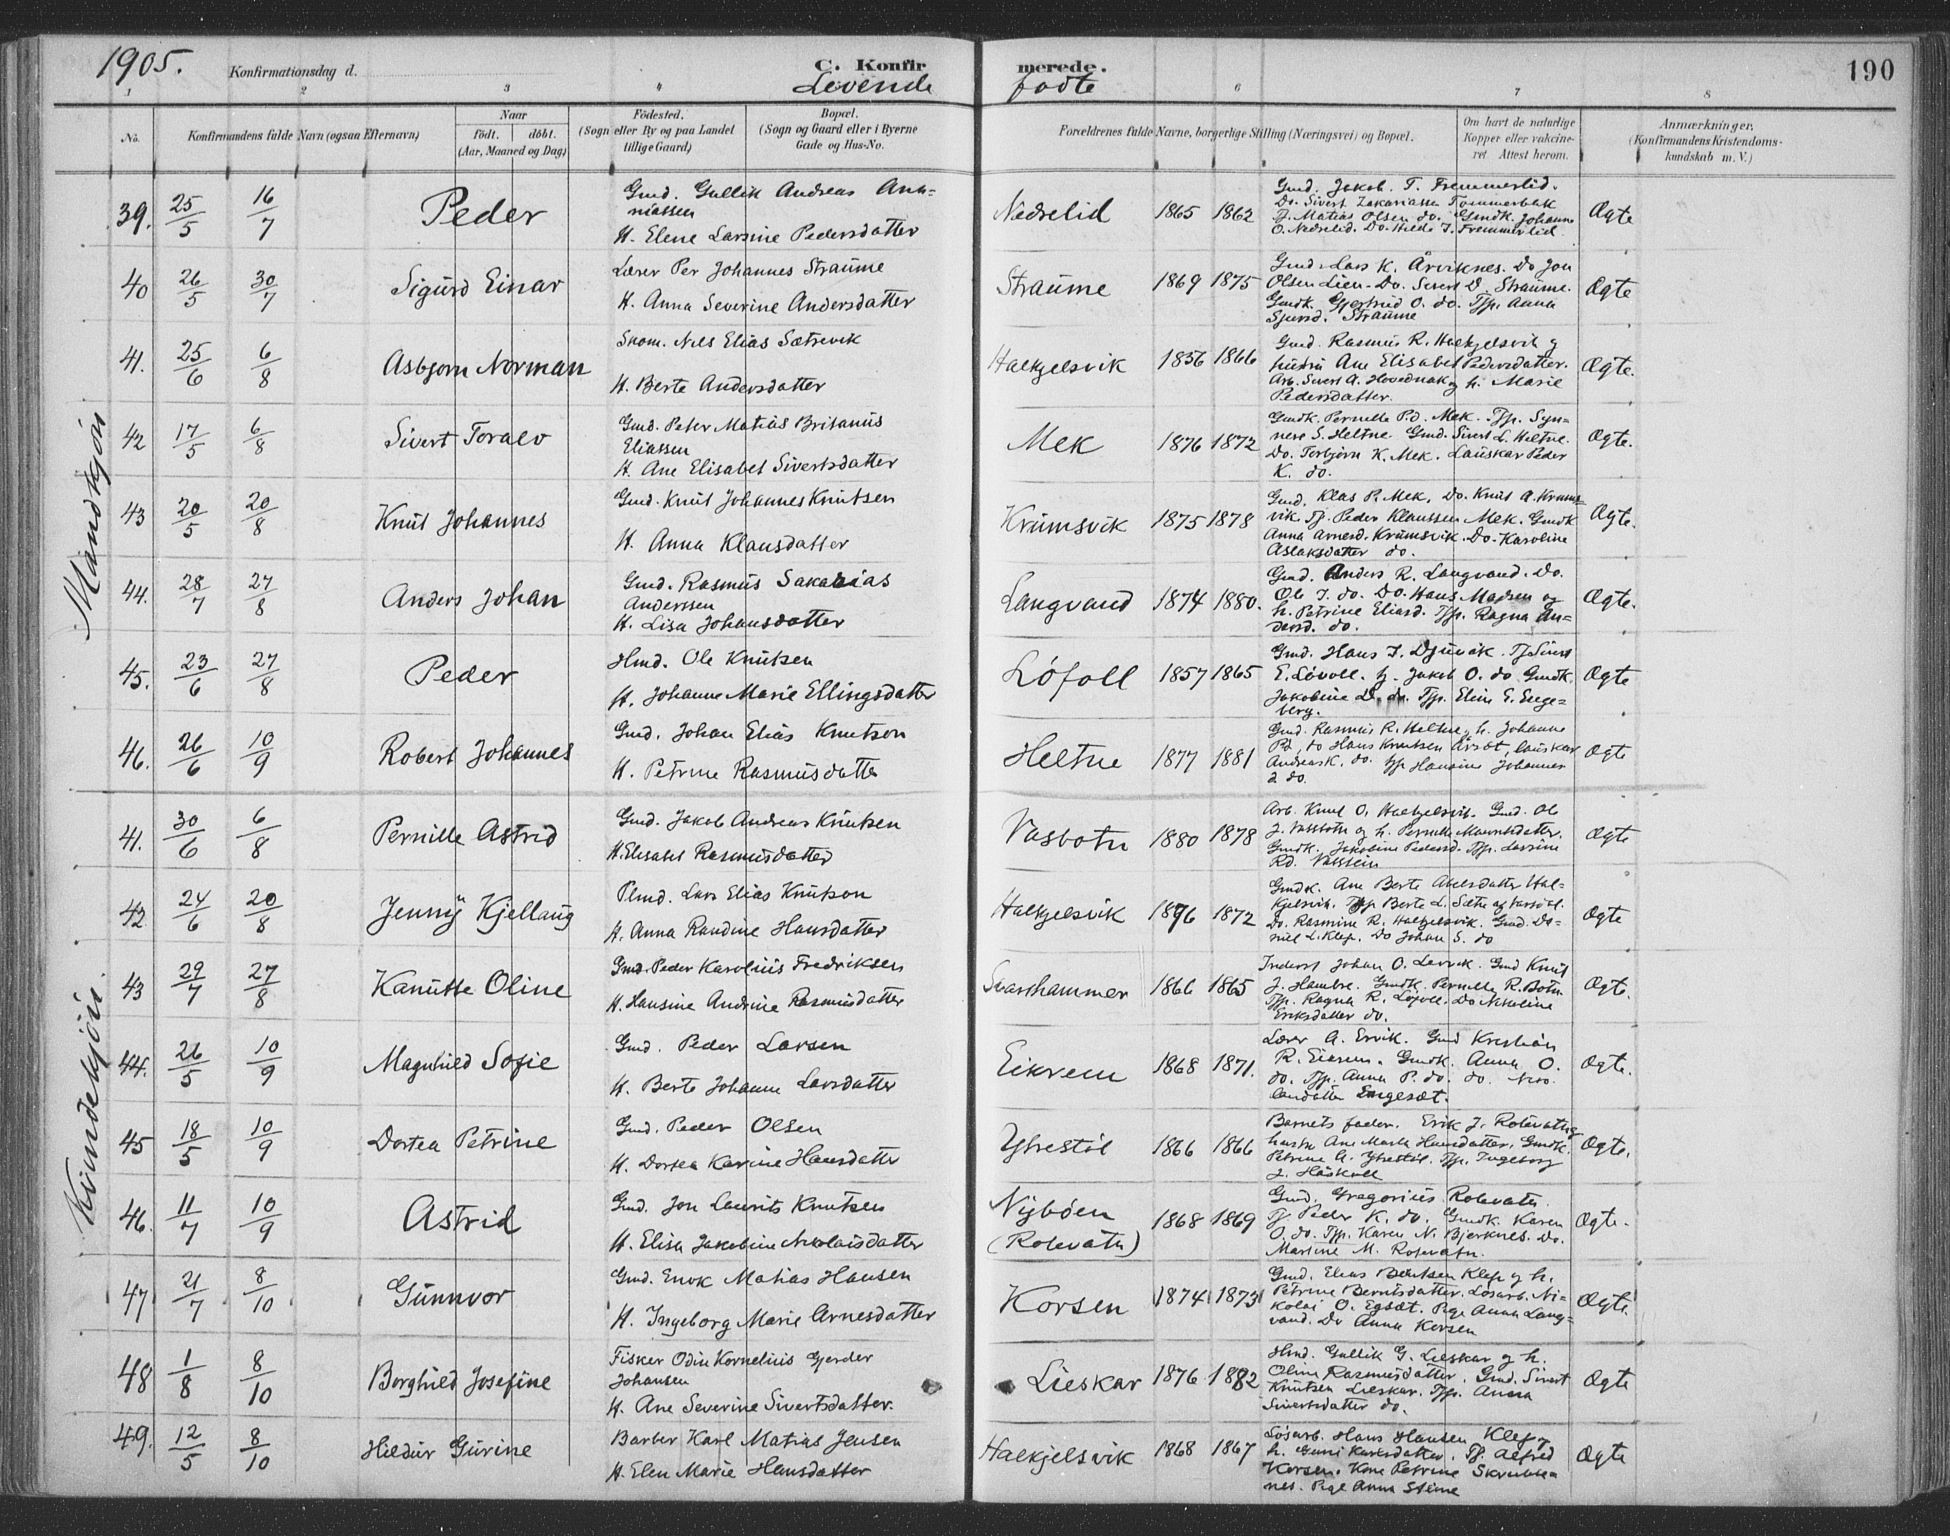 1905.
Konfirmationsdag d.
C. Konfirmerede.
Levende fødte
190
1 2 3 4 6 7 8
No.
Konfirmandens fulde Navn (ogsaa Efternavn)
Naar
födt. döbt.
(Aar, Maaned og Dag)
Födested.
(Sogn eller By og paa Landet
tillige Gaard)
Bopæl.
(Sogn og Gaard eller i Byerne
Gade og Hus-No.
Forældrenes fulde Navne, borgerlige Stilling (Næringsvei) og Bopæl.
Om havt de naturlige
Kopper eller vakcine-
ret Attest herom.
Anmærkninger.
(Konfirmandens Kristendoms-
kundskab m. V.)
Mandkjön
39. 25/5 16/7 Peder
Gmd. Gullik Andreas Ananiassen
H. Elene Larsine Pedersdatter
Nedrelid 1865 1862
Gmd. Jakob. T. Fremmerlid.
Do. Sivert Zakariassen Tømmerbak
Tj. Matias Olsen do. Gmdk. Johanne
O. Nedrelid. Do. Hilda J. Fremmerlid
Ægte
40 26/5 30/7 Sigurd Einar
Lærer Per Johannes Straume
H. Anna Severine Andersdatter
Straume 1869 1875
Gmd. Lars K. Årviknes. Do Jon
Olsen Lien. Do. Sivert D. Straume.
Gmdk. Gjertrud O. do. Tjp. Anna
Sjursd. Straume
Ægte
41. 25/6 6/8 Asbjørn Norman
Skom. Nils Elias Sætrevik
H. Berte Andersdatter
Halkjelsvik 1856 1866
Gmd. Rasmus R. Halkjelsvik og
hustru Ane Elisabet Pedersdatter.
Arb. Sivert A. Hovednak og h. Marie
Pedersdatter.
Ægte.
42 17/5 6/8 Sivert Toralv
Gmd. Peter Matias Britanus
Eliassen
H. Ane Elisabet Sivertsdatter
Mek 1876 1872
Gmdk. Pernille P.d. Mek. Tjp. Syn-
neve S. Heltne. Gmd. Sivert L. Heltne.
Do. Torbjørn K. Mek. Lauskar Peder
K. do.
Ægte.
43 20/5 20/8 Knut Johannes
Gmd. Knut Johannes Knutsen
H. Anna Klausdatter
Krumsvik 1875 1878
Gmd. Klas P. Mek. Do. Knut A. Krums-
vik. Tj. Peder Klaussen Mek. Gmdk
Anna Arnesd. Krumsvik. Do. Karoline
Aslaksdatter do.
Ægte.
44. 28/7 27/8 Anders Johan
Gmd. Rasmus Sakarias
Anderssen
H. Lisa Johansdatter
Langvand 1874 1880.
Gmd. Anders R. Langvand. Do.
Ole J. do. Do. Hans Madsen og
h. Petrine Eliasd. Tjp. Ragna An-
dersd. do.
Ægte.
45. 23/6 27/8 Peder
Hmd. Ole Knutsen
H. Johanne Marie Ellingsdatter
Löfoll 1857 1865
Gmd. Hans J. Djuvik. Tj Sivert
E. Løvoll. Tj. Jakob O. do Gmdk.
Jakobine D. do. Tjp. Elin E. Enge-
berg.
Ægte
46. 26/6 10/9 Robert Johannes
Gmd. Johan Elias Knutson
H. Petrine Rasmusdatter
Heltne 1877 1881
Gmd. Rasmus R. Heltne, h. Johanne
Pd. do Hans Knutsen Årset, lauskar
Andreas K. do. Tjp Hansine Johannes
d do.
Ægte
Kvindekjön.
41. 30/6 6/8 Pernille Astrid
Gmd. Jakob Andreas Knutsen
H. Elisabet Rasmusdatter
Vasbotn 1880 1878
Arb. Knut O. Halkjelsvik. Gmd. Ole
J. Vassbotn og h. Pernille Mauritsdatter.
Gmdk. Jakobine Pedersd. Tjp. Larsine
Rd. Vatstein
Ægte
42. 24/6 20/8 Jenny Kjellaug
Plmd. Lars Elias Knutson
H. Anna Randine Hansdatter
Halkjelsvik 1876 1872
Gmdk. Ane Berte Akselsdatter Hal-
kjelsvik. Tjp Berte L.
Do. Rasmine R. Halkjelsvik. Gmd. Da-
niel L. Klep. Do Johan S. do
Ægte
43 29/7 27/8 Kanutte Oline
Gmd. Peder Karolius Fredriksen
H. Hansine Andrine Rasmusdatter
Svarthammer 1866 1865
Inderst Johan O. Lervik. Gmd Knut
J. Hambre. Gmdk. Pernille R. Botn.
Tjp. Ragna R. Löfoll. Do Nikoline
Eriksdatter do.
Ægte.
44. 26/5 10/9 Magnhild Sofie
Gmd. Peder Larsen
H. Berte Johanne Larsdatter
Eikrem 1868 1871.
Lærer A. Ervik. Gmd Kristian
R. Eikrem. Gmdk. Anna O.
do. Tjp. Anna P. do. do.
Engeset.
Ægte.
45 18/5 10/9 Dortea Petrine
Gmd. Peder Olsen
H. Dortea Karine Hansdatter
Ytrestöl 1866 1866
Barnets fader. Erik J. Rotevatn og
hustru Ane Marta Hansdatter. Gmdk.
Petrine A. Ytrestöl. Tjp. Ingeborg
J. Håskoll
Ægte.
46. 11/7 10/9 Astrid
Gmd. Jon Laurits Knutsen
H. Elisa Jakobine Nikolaisdatter
Nybøen
(Rotevatn) 1868 1869
Gmd. Gregorius Rotevatn.
Tj. Peder K. do. Gmdk. Karen
O. do. Tjp. Karen N. Bjerknes. Do.
Martine M. Rotevatn.
Ægte.
47 21/7 8/10 Gunnvor
Gmd. Enok Matias Hansen
H. Ingeborg Marie Arnesdatter
Korsen 1874 1873
Gmd. Elias Berntsen Klep og h.
Petrine Berntsdatter. Løsarb. Ni-
kolai O. Egset. Pige Anna Lang-
vand. Do Anna Korsen
Ægte.
48 1/8 8/10 Borghild Josefine
Fisker Odin Kornelius Gjerder
Johansen
H. Ane Severine Sivertsdatter.
Lieskar 1876 1882
Hmd. Gullik G. Lieskar og h.
Oline Rasmusdatter. Gmd. Sivert
Knutsen Lieskar. Tjp. Anna
Sivertsdatter do.
Ægte
49. 12/5 8/10 Hildur Gurine
Barber Karl Matias Jensen
H. Elen Marie Hansdatter
Halkjelsvik 1868 1867
Løsarb. Hans Hansen Klep og
h. Guni Karlsdatter. Tj. Alfred
Korsen. Kone Petrine Skrubbe-
nes. Pige Anna Stene
Ægte